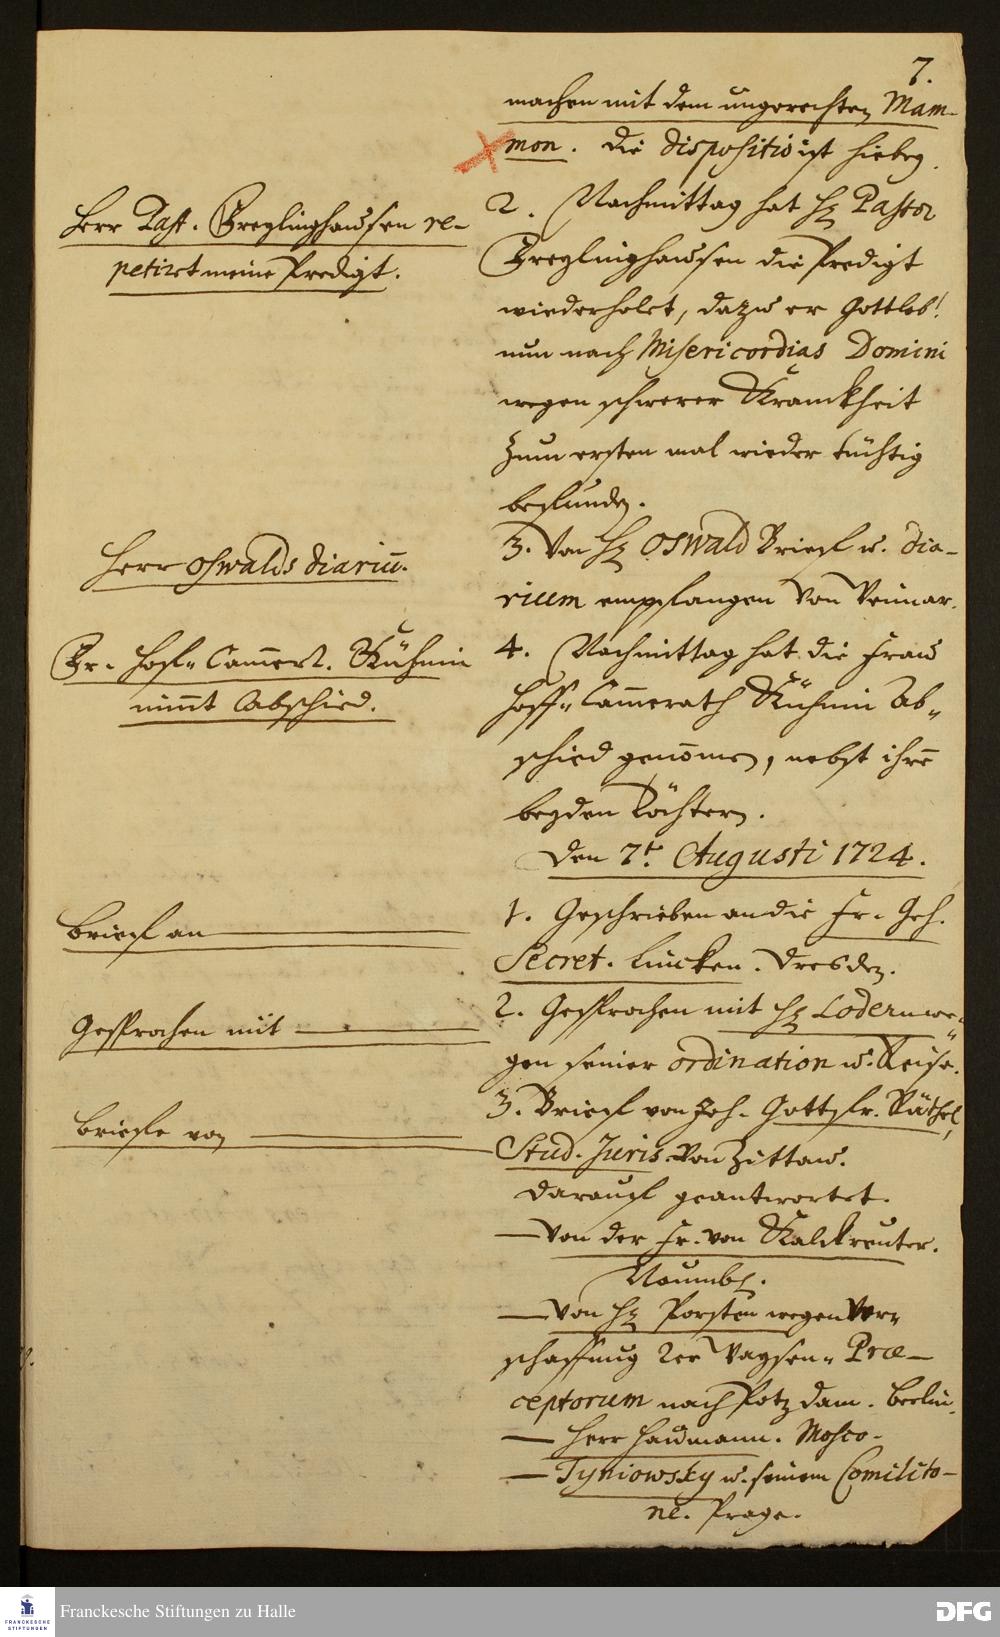 7.
machen mit dem ungerechten Mam-
mon. die dispositio ist hiebey.
Herr Past. Breylinghausen re-
petirt meine Predigt.
2. Nachmittag hat H. Pastor
Freylinghausen die Predigt
wiederholet, dazu er Gottlob!
nun nach Misericordias Domini
wegen schwerer Kranckheit
zum ersten mal wieder tüchtig
befunden.
Herr Oswalds diariū.
3. Von H. Oswald Brieff u. dia-
rium empfangen von Weimar.
Fr. Hoff-Cam̄err. Kühnin
nim̄t Abschied.
4. Nachmittag hat die Frau
Hoff-Cam̄errath Kühnin Ab-
schied genom̄en, nebst ihrē
beyden Töchtern.
Den 7t. Augusti 1724.
Brieff an
1. Geschrieben an die Fr. Geh.
Secret. Lincken. Dresden.
Gesprochen mit
2. Gesprochen mit H. Lodern we-
gen seiner ordination u. Reise.
Brieffe von
3. Brieff von Joh. Gottfr. Räthel,
Stud. Juris von Zittau.
darauff geantwortet.
— Von der Fr. von Kalckreuter.
Naumb.
— Von H. Porsten wegen Ver-
schaffung 2er Waysen- Præ-
ceptorum nach Potzdam. Berlin.
— Herr Haumann. Mosco-
— Tyniowsky u. seinem Comilito-
ne. Prage.
Franckesche Stiftungen zu Halle
FRANCKESCHE
STIFTUNGEN
DFG